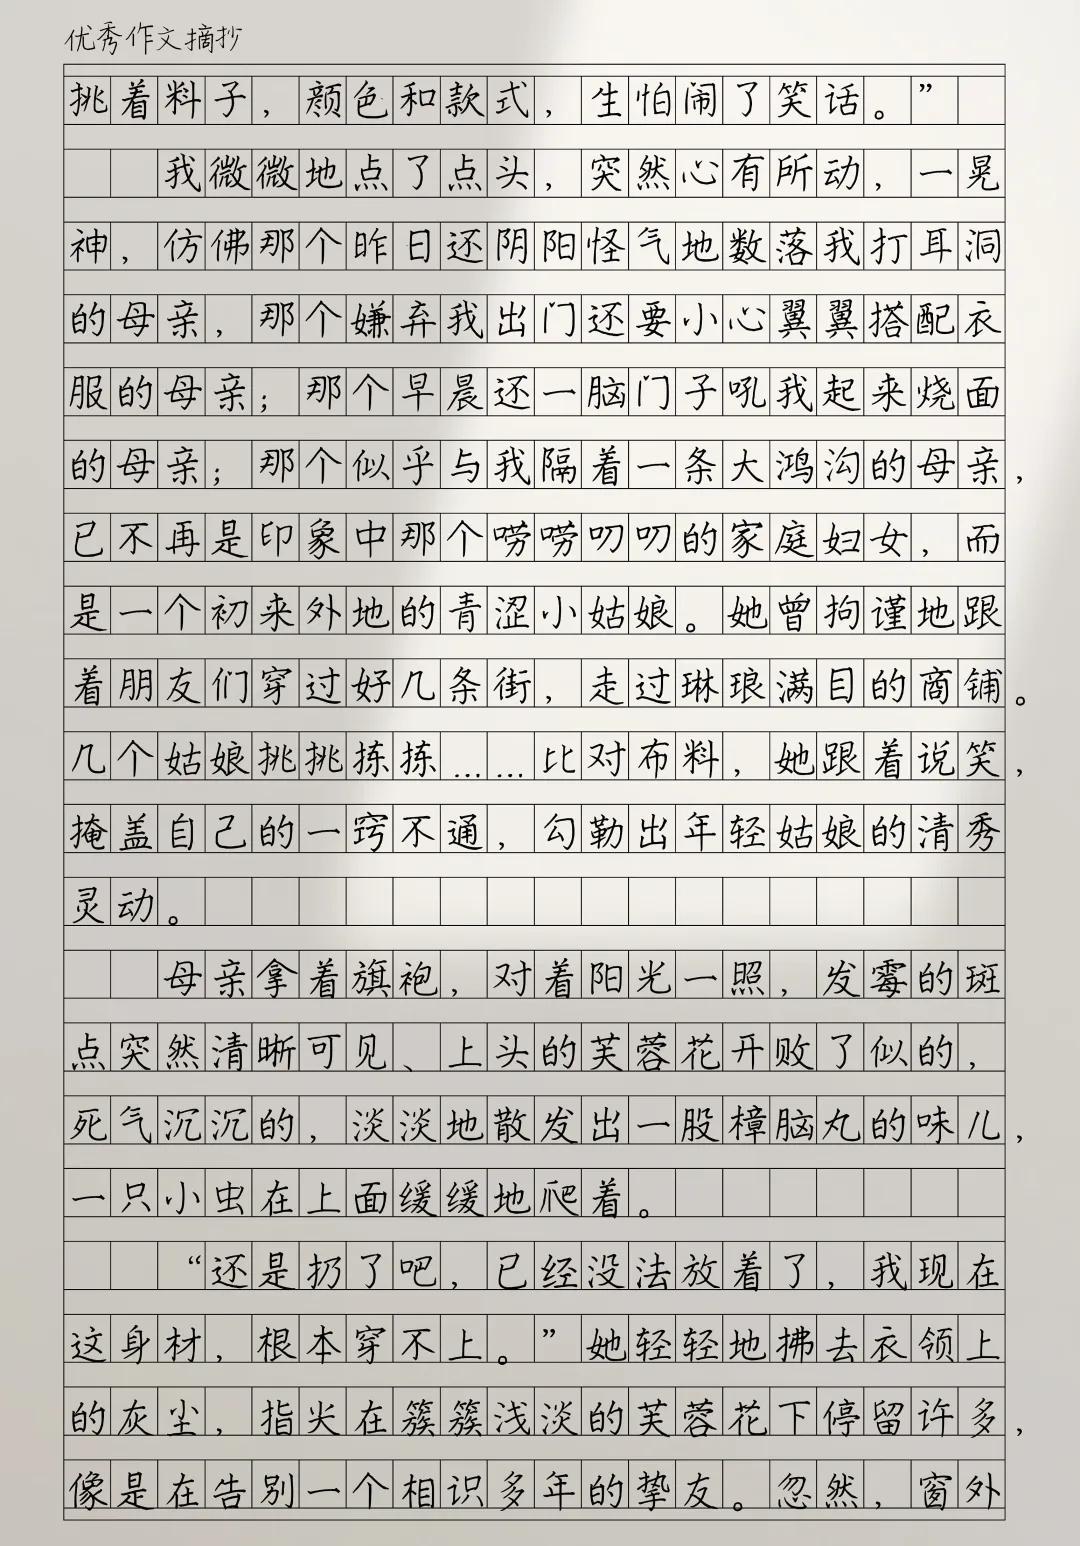 优秀作文摘抄
挑着料子，颜色和款式，生怕闹了笑话。”
我微微地点了点头，突然心有所动，一晃
神，仿佛那个昨日还阴阳怪气地数落我打耳洞
的母亲，那个嫌弃我出门还要小心翼翼搭配衣
服的母亲；那个早晨还一脑门子吼我起来烧面
的母亲；那个似乎与我隔着一条大鸿沟的母亲，
已不再是印象中那个唠唠叨叨的家庭妇女，而
是一个初来外地的青涩小姑娘。她曾拘谨地跟
着朋友们穿过好几条街，走过琳琅满目的商铺。
几个姑娘挑挑拣拣……比对布料，她跟着说笑，
掩盖自己的一窍不通，勾勒出年轻姑娘的清秀
灵动。
母亲拿着旗袍，对着阳光一照，发霉的斑
点突然清晰可见、上头的芙蓉花开败了似的，
死气沉沉的，淡淡地散发出一股樟脑丸的味儿，
一只小虫在上面缓缓地爬着。
“还是扔了吧，已经没法放着了，我现在
这身材，根本穿不上。”她轻轻地拂去衣领上
的灰尘，指尖在簇簇浅淡的芙蓉花下停留许多，
像是在告别一个相识多年的挚友。忽然，窗外